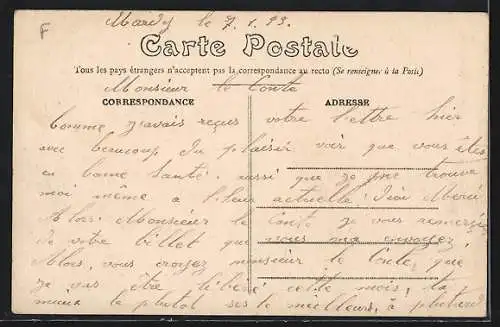 F
Mardy le 7. 1. 23.
Carte Postale
Tous les pays étrangers n'acceptent pas la correspondance au recto (Se renseigner à la Poste)
Monsieur le Conte
CORRESPONDANCE
ADRESSE
Comme j'avais reçus votre lettre hier
avec beaucoup du plaisir voir que vous êtes
en bonne santé. aussi que je me trouve
moi même a l'heur actuelle. Dieu Merci
Alors. Monsieur le Conte je vous remercie
de votre billet que vous ma envoyez
Alors, vous croyez monsieur le Conte, que
je vas être libéré cette mois, ta
mieux le plutot ses le meilleurs, à